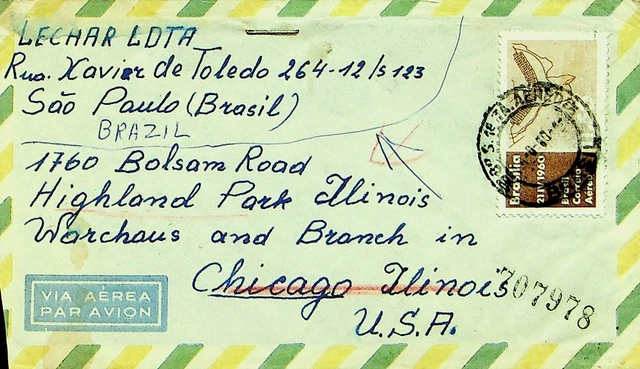 LECHAR LDTA
Rua. Xavier de Toledo 264-12/s 123
São Paulo (Brasil)
BRAZIL
1760 Bolsam Road
Highland Park Illinois
Warehaus and Branch in
Chicago Illinois
U.S.A.
707978
VIA AÉREA
PAR AVION
Brasília
21 IV 1960
Brasil
Correio
Aéreo